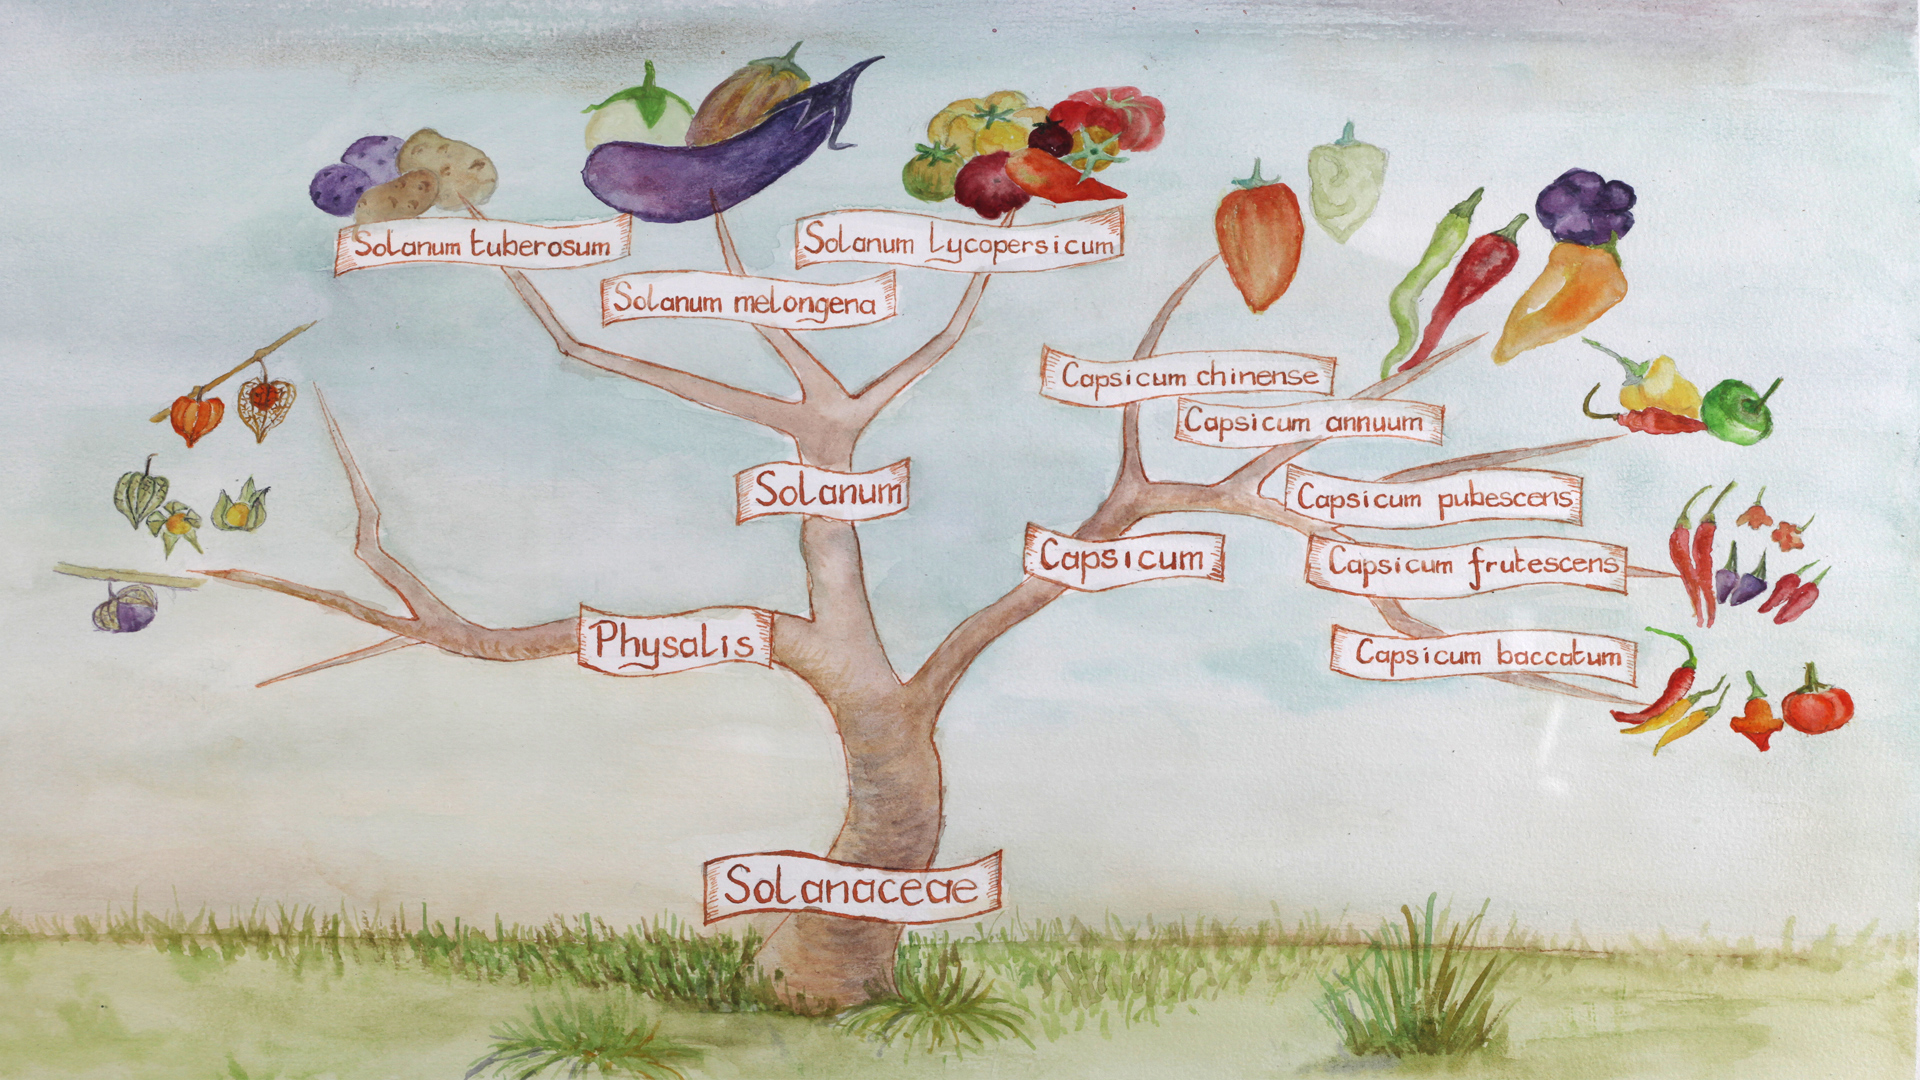 Solanum tuberosum
Solanum Lycopersicum
Solanum melongena
Capsicum chinense
Capsicum annuum
Solanum
Capsicum pubescens
Capsicum
Capsicum frutescens
Physalis
Capsicum baccatum
Solanaceae